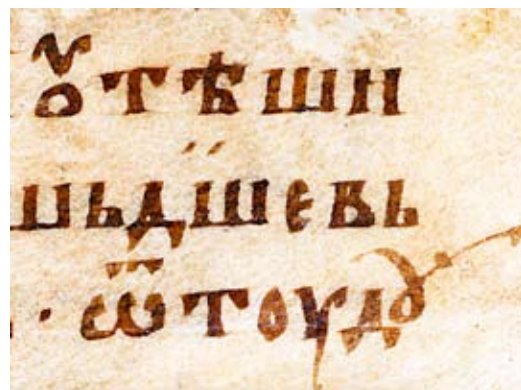 ꙋтѣшн
шьдⷲ̈шевь
· ѿтоудꙋ